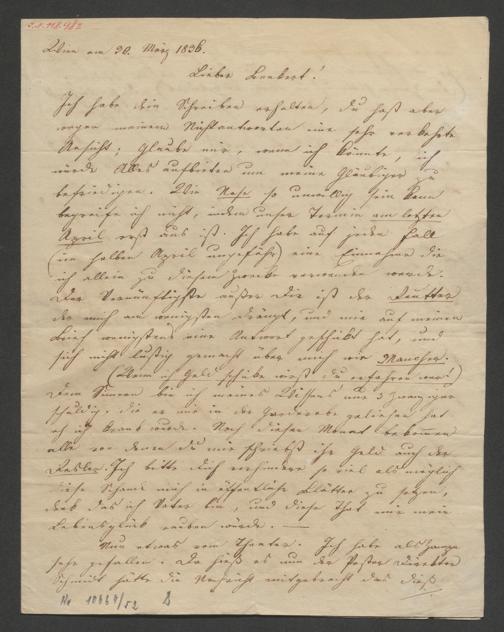 Wien am 30. März 1836.
Lieber
Ich habe dein Schreiben erhalten, du hast aber
wegen meinem Nichtantworten eine sehr verkehrte
Ansicht; glaube mir, wenn ich könnte, ich
würde Alles aufbieten um meine Gläubiger zu
befriedigen. Wie Nese so unwillig sein kann
begreife ich nicht, indem unser Termin am letzten
April erst aus ist. Ich habe auf jeden Fall
(im halben April ungefähr) eine Einnahme die
ich allein zu diesem Zwecke verwenden werde.
Der Vernünftigste außer Dir ist der
der mich am wenigsten drängt, und mir auf meinen
Brief wenigstens eine Antwort geschickt hat, und
sich nicht lustig gemacht über mich wie Mancher.
(Wenn ich Geld schicke wirst du erfahren wer!)
Dem bin ich meines Wissens nur 3 Zwanziger
schuldig. die er mir in der Garderobe geliehen hat
als ich krank wurde. Noch dieses Monat bekommen
alle von denen du mir schreibst ihr Geld auch der
Ich bitte dich verhindere so viel als möglich
diese Schand mich in öffentliche Blätter zu setzen,
denk das ich Vater bin, und diese That mir mein
Lebensglück rauben würde. —
Nun etwas vom Theater. Ich habe als
sehr gefallen. Da hieß es nun der Pester Direktor
Schmidt hätte die Nachricht mitgebracht das dieß